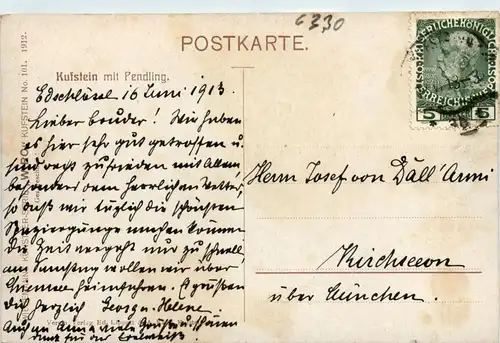 6330
POSTKARTE.
Kufstein mit Pendling.
Edschlössl 16 Juni 1913.
Lieber Bruder! Wir haben
es hier sehr gut getroffen u.
sind recht zufrieden mit Allem,
besonders vom herrlichen Wetter,
so daß wir täglich die schönsten
Spaziergänge machen können
die Zeit vergeht nur zu schnell,
am Samstag wollen wir über
heimfahren. Es grüßen
dich herzlich Georg u. Helene.
Auch an Anna viele Grüße u. schönen
Dank für der Edelweiß
Herrn Josef von Dall'Armi
Kirchseeon
über München.
KUFSTEIN No. 101. 1912.
5 5